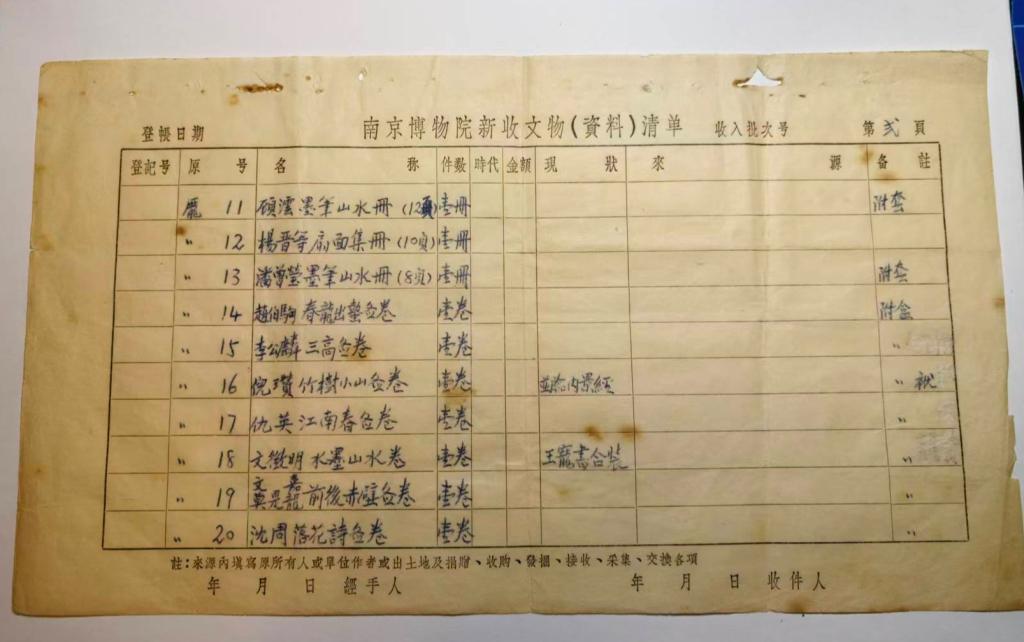 登帳日期 南京博物院新收文物(資料)清单 收入批次号 第弍頁
登記号 原号 名称 件数 時代 金額 現狀 來源 备註
龐 11 顾澐墨笔山水冊(12頁) 壹冊 附套
〃 12 楊晋等扇面集冊(10頁) 壹冊
〃 13 潘曾瑩墨笔山水冊(8頁) 壹冊 附套
〃 14 趙伯駒春龍出蟄啚卷 壹卷 附盒
〃 15 李公麟三高啚卷 壹卷 〃
〃 16 倪瓚竹樹小山啚卷 壹卷 內景經 〃 袱
〃 17 仇英江南春啚卷 壹卷 〃
〃 18 文徵明水墨山水卷 壹卷 王寵書合裝 〃
〃 19 文嘉 莫是龍 前後赤壁啚卷 壹卷 〃
〃 20 沈周落花詩啚卷 壹卷 〃
註:來源內填寫原所有人或單位作者或出土地及捐贈、收购、發掘、接收、采集、交換各項
年 月 日 經手人 年 月 日 收件人